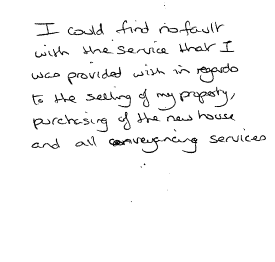 I could find no fault
with the service that I
was provided wish in regards
to the selling of my property,
purchasing of the new house
and all conveyancing services